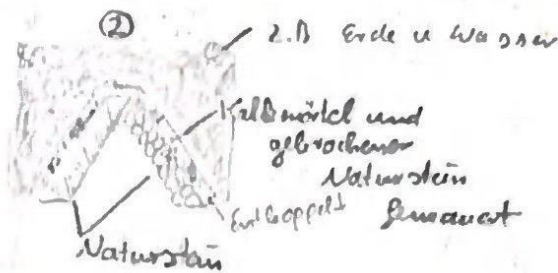 ②
z.B Erde u Wasser
Kalkmörtel und
gebrochener
Naturstein
gemauert
Entkoppelt
Naturstein